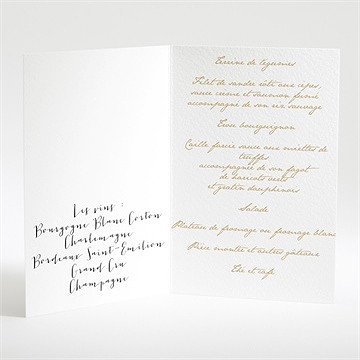 Les vins :
Bourgogne Blanc Corton
Charlemagne
Bordeaux Saint-Emilion
Grand Cru
Champagne
Terrine de légumes
Filet de sandre rôti aux cèpes,
sauce crème et saumon fumé
accompagné de son riz sauvage
Trou bourguignon
Caille farcie sauce aux miettes de
truffes
accompagnée de son fagot
de haricots vert
et gratin dauphinois
Salade
Plateau de fromage ou fromage blanc
Pièce montée et autres gâteaux
Thé et café